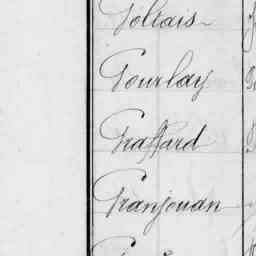 Goliais
Gourlay
Graffard
Granjouan